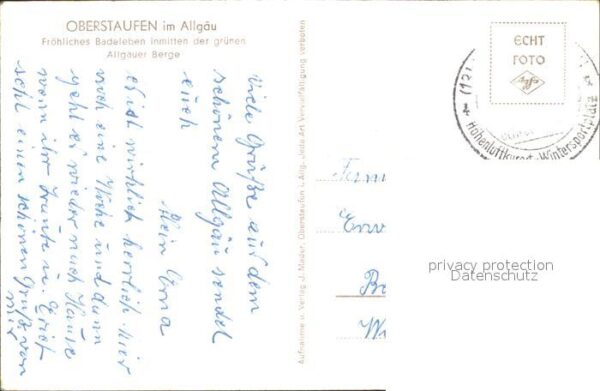 OBERSTAUFEN im Allgäu
Fröhliches Badeleben inmitten der grünen
Allgäuer Berge
Viele Grüße aus dem
schönem Allgäu sendet
euch
Erna
es ist wirklich herrlich hier
noch eine Woche und dann
geht es wieder nach Hause
wenn ihr
schl einen schönen Gruß von
mir
Aufnahme u. Verlag J. Mader, Oberstaufen i. Allg. Jede Art Vervielfältigung verboten
ECHT
FOTO
Agfa
* Höhenluftkurort - Wintersportplatz *
privacy protection
Datenschutz